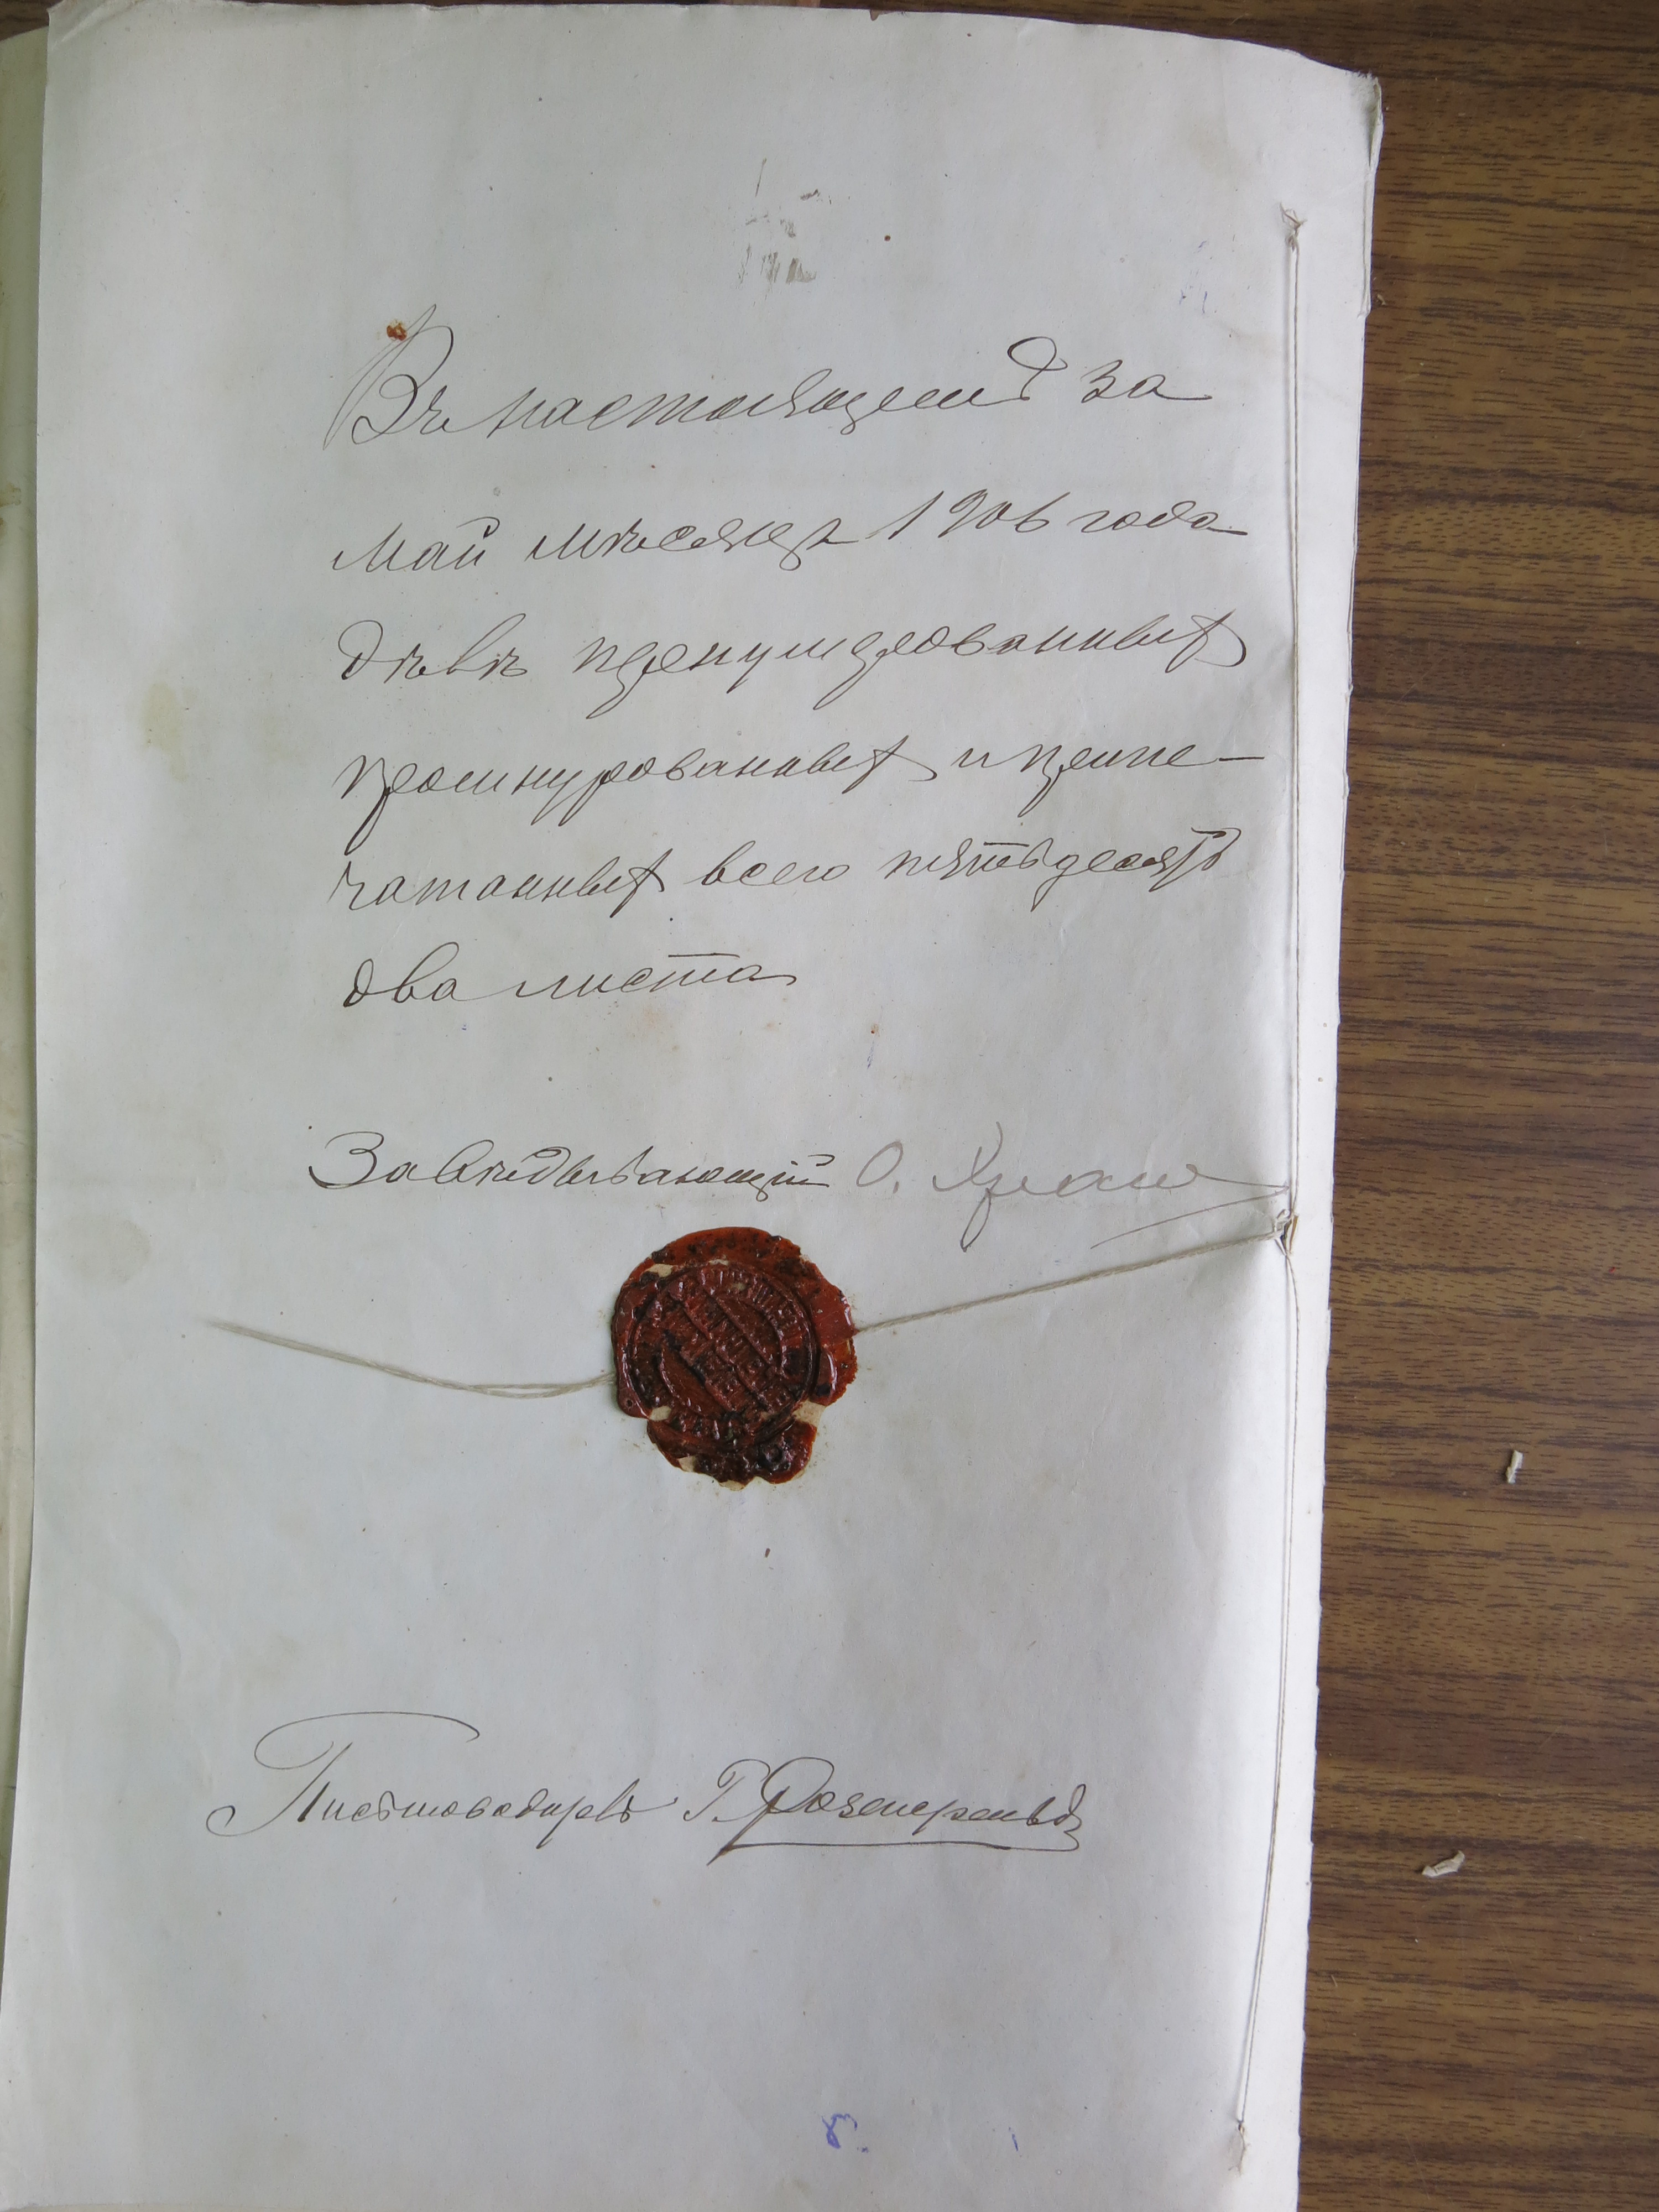 Въ настоящемъ за
май мѣсяцъ 1906 года
дѣлѣ пронумерованныхъ
прошнурованныхъ и припе-
чатанныхъ всего пятьдесятъ
два листа
Завѣдывающій О.
Письмоводитель Г. Розенфельдъ